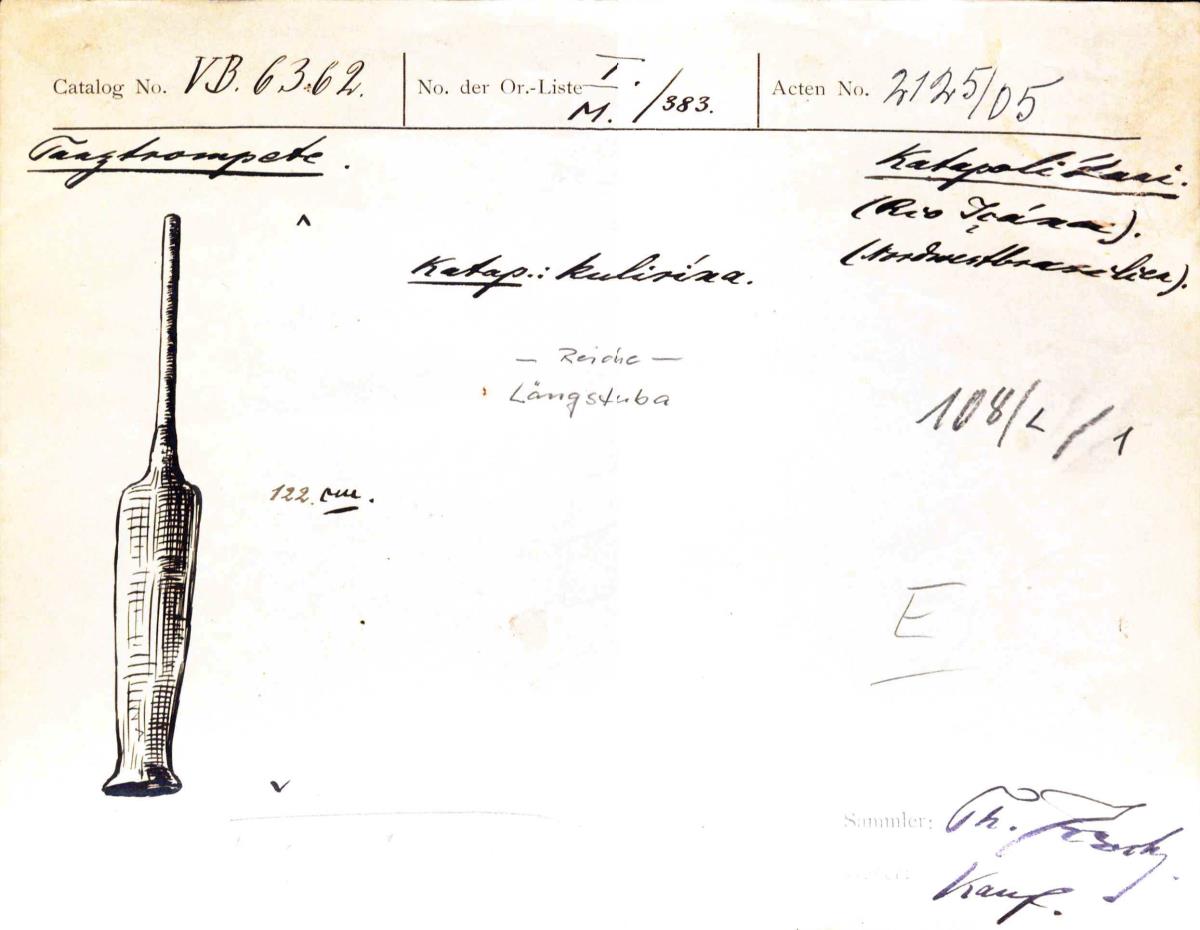 Catalog No. VB. 6362.
No. der Or.-Liste I. M. /383.
Acten No. 2125/05
Tanztrompete.
Katapolítani.
(Rio Içána).
(Nordwestbrasilien).
Katap.: kulirína.
— Reiche —
Längstuba
108/L/1
122. cm.
E
Sammler: Th. Koch,
Kauf.